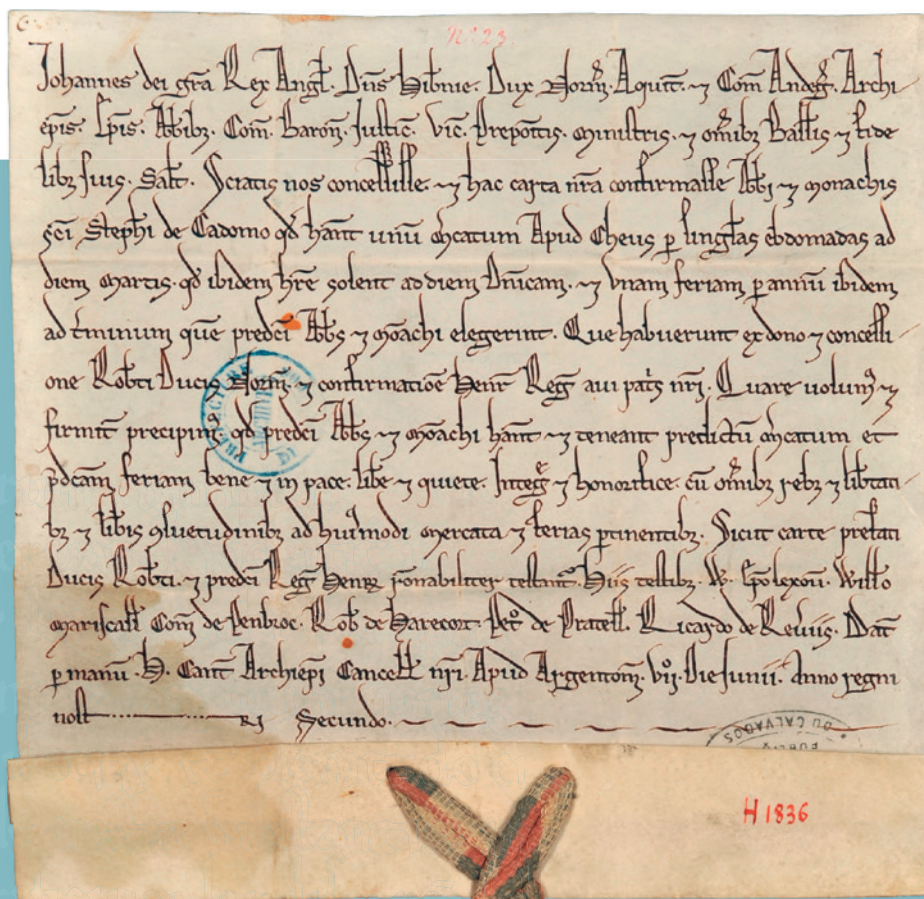 N° 23
Johannes dei grã Rex Angł. Dñs Hiƀnie. Dux Norm̃. Aquit̃. ⁊ Com̃ Andeg̃. Archi
ep̃is. Ep̃is. Abƀibꝫ. Com̃. Baroñ. Justic̃. Vic̃. Prepoĩtis. Ministris. ⁊ om̃ibꝫ Baƚƚis ⁊ fide
libꝫ suis. Saƚt. Sciatis nos concessisse. ⁊ hac carta nr̃a confirmasse Abƀi ⁊ monachis
sc̃i Steph̃i de Cadomo qd̃ hãnt unũ m̃catum Apud Cheus ꝑ singƚas ebdomadas ad
diem Martis. qd̃ ibidem hr̃e solent ad diem Dñicam. ⁊ Vnam feriam ꝑ annũ ibidem
ad t̃minum quẽ predc̃i Abƀs ⁊ Mõachi elegerint. Que habuerunt ex dono ⁊ concessi
one Roƀti Ducis Norm̃. ⁊ confirmatiõe Henr̃ Reg̃ aui pat̃s nr̃i. Quare uolumꝰ ⁊
firmit̃ precipimꝰ. qd̃ predc̃i Abƀs ⁊ Mõachi hãnt ⁊ teneant predictũ m̃catum et
p̃dc̃am feriam bene ⁊ in pace. liƀe ⁊ quiete. Integ̃ ⁊ honorifice. cũ om̃ibꝫ rebꝫ ⁊ liƀtati
bꝫ ⁊ liƀis ꝯsuetudinibꝫ ad huiꝰmodi Mercata ⁊ ferias ꝑtinentibꝫ. Sicut carte prefati
Ducis Roƀti. ⁊ predc̃i Reg̃ Henr̃ rõnabiliter testant̃. Hiis testibꝫ. W. Ep̃o Lexoñ. Wiƚƚo
Marescaƚƚ Com̃ de Penbroc. Roƀ de Harecort. Pet̃ de Prateƚƚ. Ricardo de Reuiis. Dat̃
ꝑ manũ. H. Cant̃ Archiep̃i Canceƚƚ nr̃i. Apud Argentom̃. vij. Die Junii. Anno regni
nost ri Secundo.
DU CALVADOS
H 1836